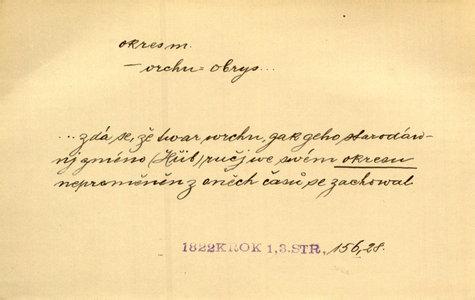 okres m.
— vrchu = obrys...
... zdá se, že twar wrchu, gak geho starodáw-
ný gméno (Hůb) ručj we swém okresu
neproměněn z oněch časů se zachowal
1822KROK 1,3.STR, 156,28.